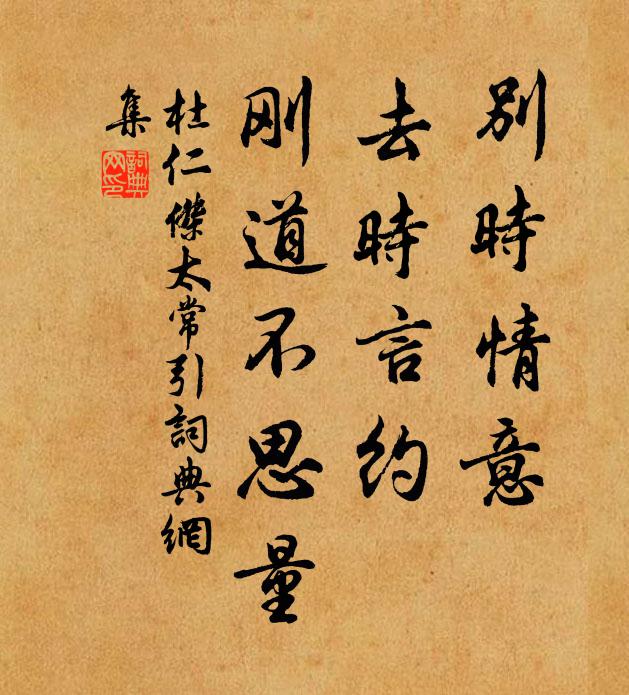 別時情意
去時言約
剛道不思量
杜仁傑太常引詞典網
集
詞典網印